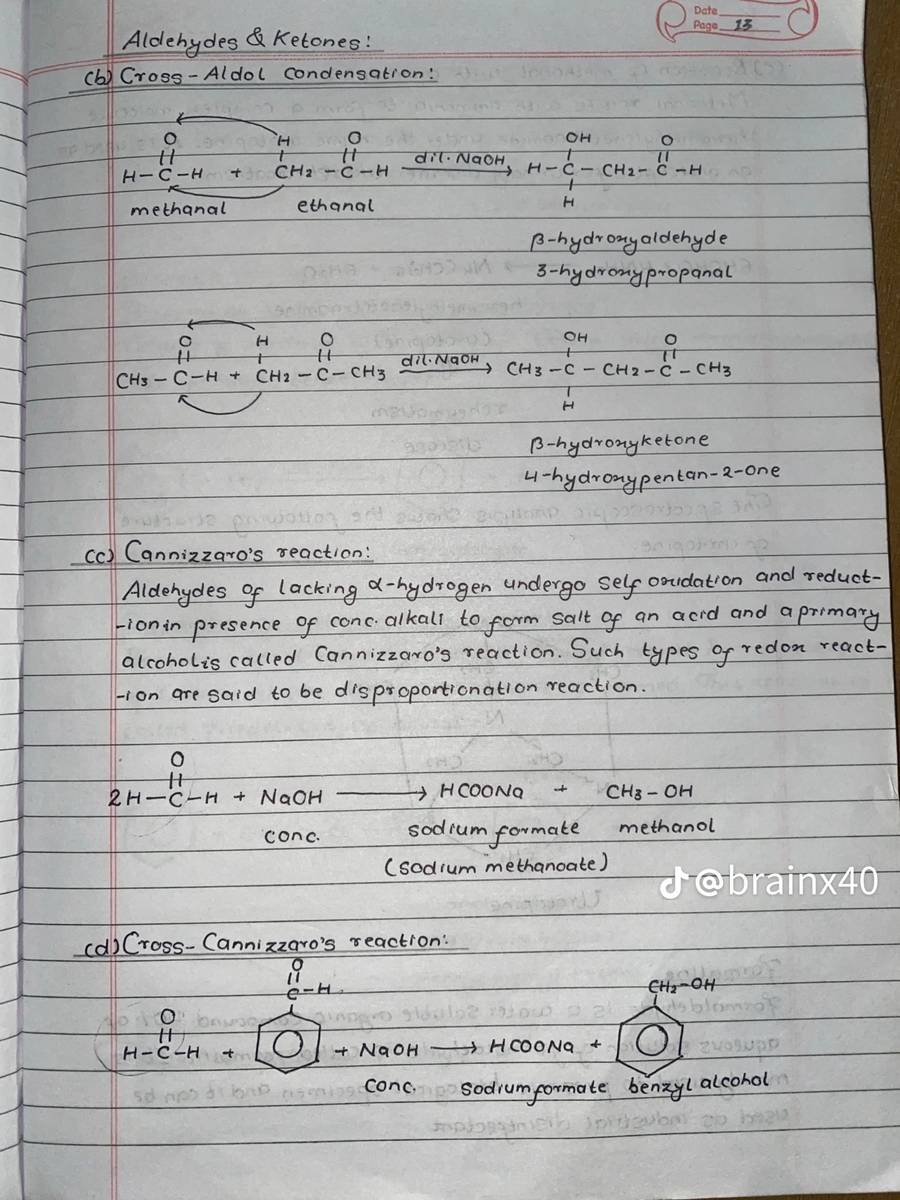 Date
Page 13
Aldehydes & Ketones:
(b) Cross-Aldol condensation:
O H O OH O
H-C-H + CH2-C-H dil.NaOH → H-C-CH2-C-H
H
methanal ethanal
β-hydroxyaldehyde
3-hydroxypropanal
O H O OH O
CH3-C-H + CH2-C-CH3 dil.NaOH → CH3-C-CH2-C-CH3
H
β-hydroxyketone
4-hydroxypentan-2-one
(c) Cannizzaro's reaction:
Aldehydes of lacking α-hydrogen undergo self oxidation and reduct-
-ion in presence of conc. alkali to form salt of an acid and a primary
alcohol is called Cannizzaro's reaction. Such types of redox react-
-ion are said to be disproportionation reaction.
O
2H-C-H + NaOH → HCOONa + CH3-OH
conc. sodium formate methanol
(sodium methanoate)
@brainx40
(d) Cross-Cannizzaro's reaction:
O
C-H CH2-OH
O
H-C-H + + NaOH → HCOONa +
conc. sodium formate benzyl alcohol